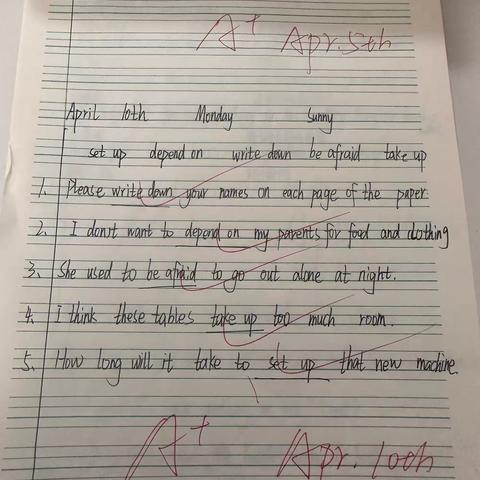 A+ Apr. 5th
April 10th Monday Sunny
set up depend on write down be afraid take up
1. Please write down your names on each page of the paper.
2. I don't want to depend on my parents for food and clothing
3. She used to be afraid to go out alone at night.
4. I think these tables take up too much room.
5. How long will it take to set up that new machine.
A+ Apr. 10th